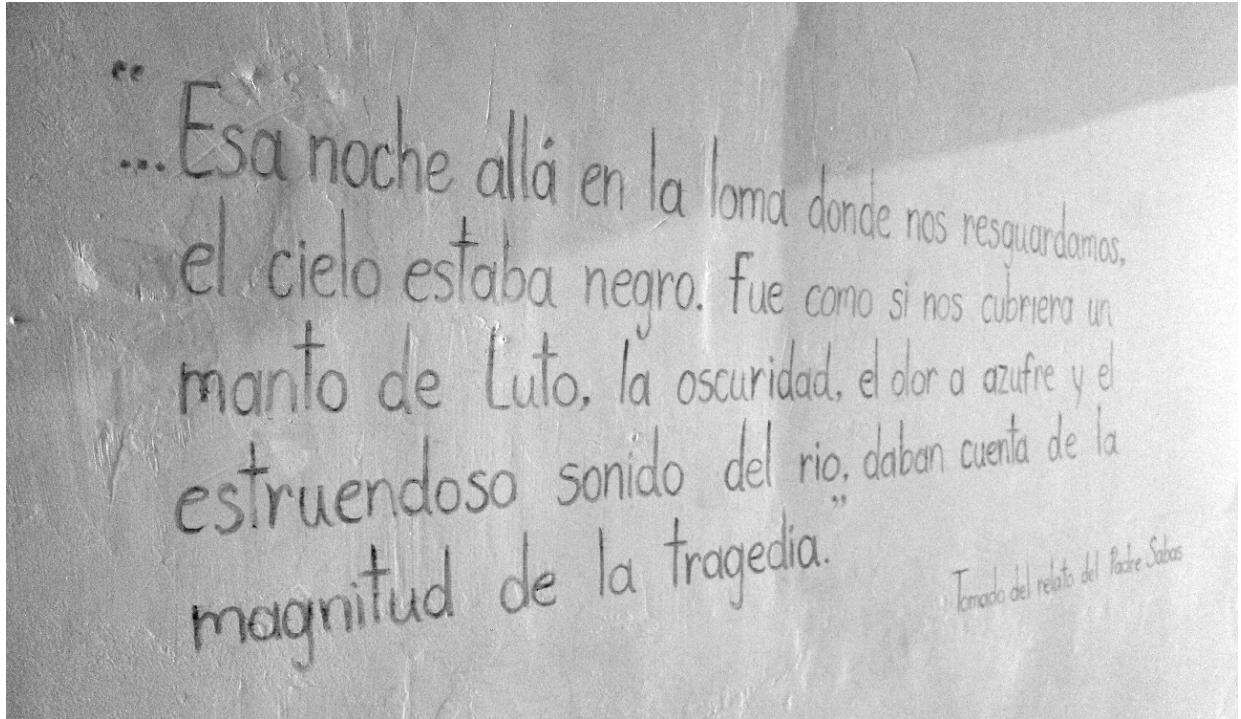 "...Esa noche allá en la loma donde nos resguardamos,
el cielo estaba negro. fue como si nos cubriera un
manto de Luto, la oscuridad, el olor a azufre y el
estruendoso sonido del rio, daban cuenta de la
magnitud de la tragedia."
Tomado del relato del Padre Sabas